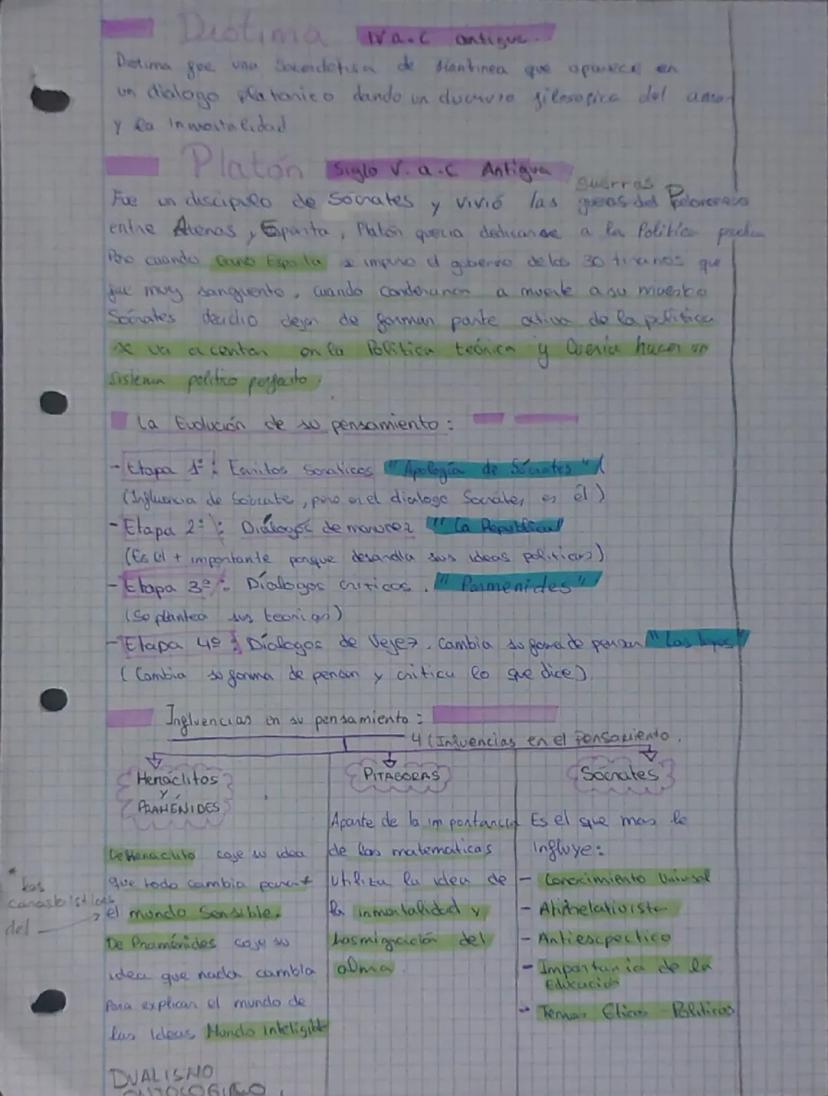 Diotima IV a.c antigua.
Diotima fue una Sacerdotisa de Mantinea que aparece en
un dialogo platonico dando un discurso filosofico del amor
y la inmortalidad
Platón Siglo V. a.C Antigua
guerras
Fue un discipulo de Sócrates y vivió las del Peloponeso
entre Atenas y Esparta, Platón queria dedicarse a la Politica
Pero cuando Gano Esparta se impuso el gobierno de los 30 tiranos que
fue muy sangriento, cuando condenaron a muerte a su maestro
Sócrates decidio dejar de forman parte activa de la politica
se va a centar en la Politica teórica y Queria hacer un
sistema politico perfecto.
La Evolución de su pensamiento:
- Etapa 1º: Escritos Socraticos "Apología de Sócrates"
(Influencia de Socrate, pero en el dialogo Socrates, es él)
- Etapa 2º: Diálogos de madurez "La Republica"
(Es el + importante porque desarrolla sus ideas politicas)
- Etapa 3º: Díalogos criticos. "Parmenides"
(Se plantea sus teorias)
- Etapa 4º: Díalogos de Vejez. Cambia su forma de pensar "Las leyes"
(Cambia su forma de pensar y critica lo que dice).
Influencias en su pensamiento:
4 Influencias en el Pensamiento.
Heráclitos
y
PRAMÉNIDES
De Heraclito coje su idea
que todo cambia para
* Las
caracteristicas
del
el mundo Sensible.
De Praménides coje su
idea que nada cambia
Para explicar el mundo de
las Ideas Mundo inteligible
PITAGORAS
Aparte de la importancia
de las matematicas
Utiliza la idea de
la inmortalidad y
tasmigración del
alma
Sócrates
Es el que mas le
influye:
- Conocimiento Univrsal
- Antirelativista
- Antiescpectico
- Importancia de la
Educación
- Temas Eticos - Politicos
DUALISMO
ONTOLOGICO